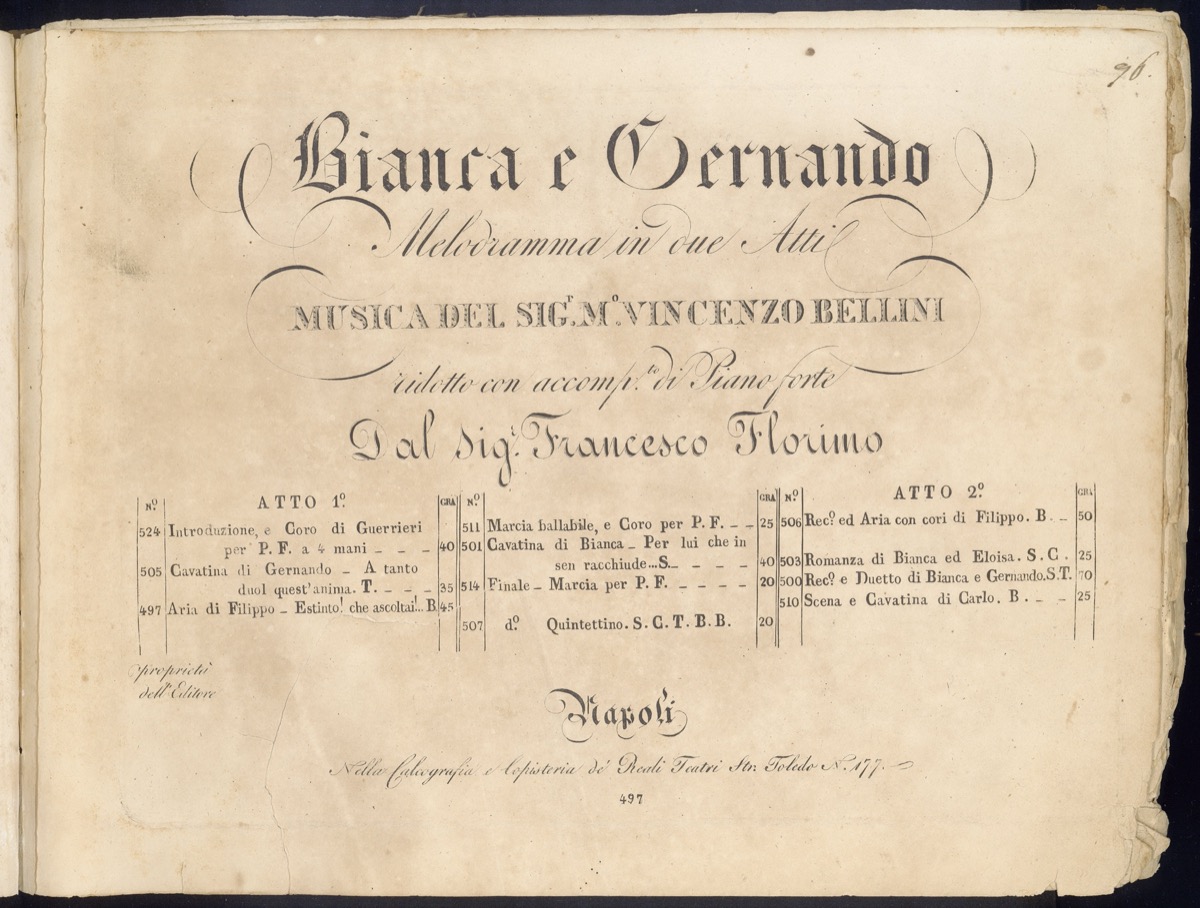 96.
Bianca e Gernando
Melodramma in due Atti
MUSICA DEL SIG.r M.o VINCENZO BELLINI
ridotto con accomp.to di Piano forte
Dal sig.r Francesco Florimo
N.o ATTO 1.o GRA
524 Introduzione, e Coro di Guerrieri
per P. F. a 4 mani _ _ _ 40
505 Cavatina di Gernando _ A tanto
duol quest'anima. T. _ _ _ 35
497 Aria di Filippo _ Estinto! che ascoltai!.. B. 45
N.o GRA
511 Marcia ballabile, e Coro per P. F. _ _ 25
501 Cavatina di Bianca _ Per lui che in
sen racchiude...S. _ _ _ _ 40
514 Finale _ Marcia per P. F. _ _ _ _ _ 20
507 d.o Quintettino. S. C. T. B. B. 20
N.o ATTO 2.o GRA
506 Rec.o ed Aria con cori di Filippo. B. _ _ 50
503 Romanza di Bianca ed Eloisa. S. C. 25
500 Rec.o e Duetto di Bianca e Gernando. S. T. 70
510 Scena e Cavatina di Carlo. B. _ _ _ 25
proprietà
dell'Editore
Napoli
Nella Calcografia e Copisteria de' Reali Teatri Str. Toledo N. 177.
497